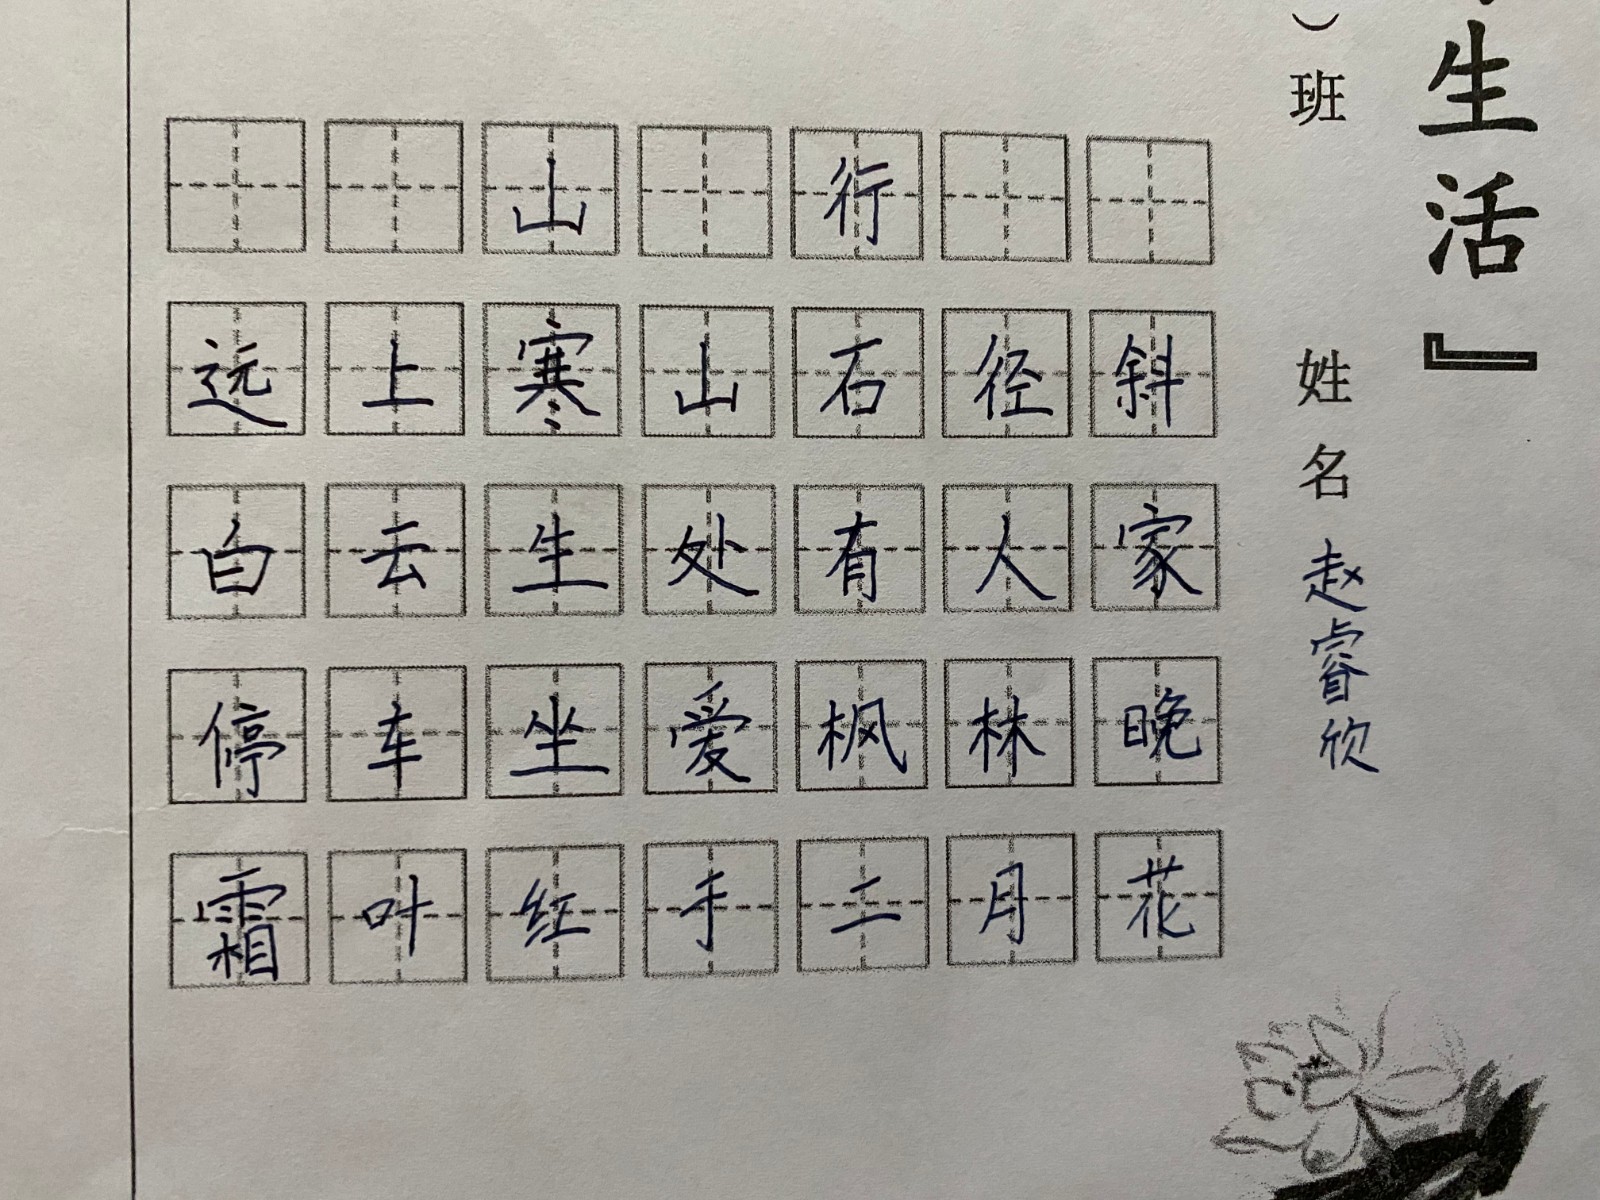 山行
远上寒山石径斜
白云生处有人家
停车坐爱枫林晚
霜叶红于二月花
）班 姓名 赵睿欣
生活』